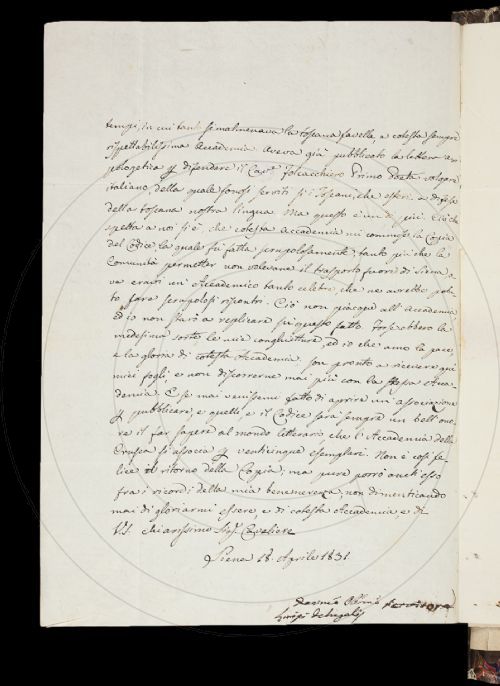 tempi, in cui tanto si malmenava la toscana favella a cotesta sempre
rispettabilissima Accademia aveva già pubblicato la lettera
pologetica p difendere il Cav.e Folcacchiero Primo Poeta volgare
italiano, della quale sonosi serviti si i Toscani, che esteri a difesa
della toscana nostra lingua. Ma questo è un di più. Ciò che
spetta a noi si è, che cotesta Accademia mi commise la Copia
del Codice, la quale fu fatta scrupolosamente, tanto più che la
Comunità permetter non volevane il trasporto fuori di Siena, o-
ve eravi un Accademico tanto celebre, che ne avrebbe potu-
to fare scrupolosi riscontri. Ciò non piacque all'Accademia
Ed io non starò a replicare su questo fatto. Forse ebbero la
medesima sorte le mie conghietture, ed io che amo la pace,
e la gloria di cotesta Accademia son pronto a ricevere que
miei fogli, e non discorrerne mai più con la stessa Acca-
demia. E se mai venissemi fatto di aprire un associazione
p pubblicare, e quelli e il Codice sarà sempre un bell'ono-
re il far sapere al mondo letterario, che l'Accademia della
Crusca si associa p venticinque esemplari. Non è così fe-
lice il ritorno della Copia; ma pure porrò anch'esso
fra i ricordi della mia benemerenza, non dimenticando
mai di gloriarmi essere, e di cotesta Accademia e di
V.S. chiarissimo Sig.r Cavaliere
Siena 18. Aprile 1831
Devmo Obbmo servitore
de Angelis